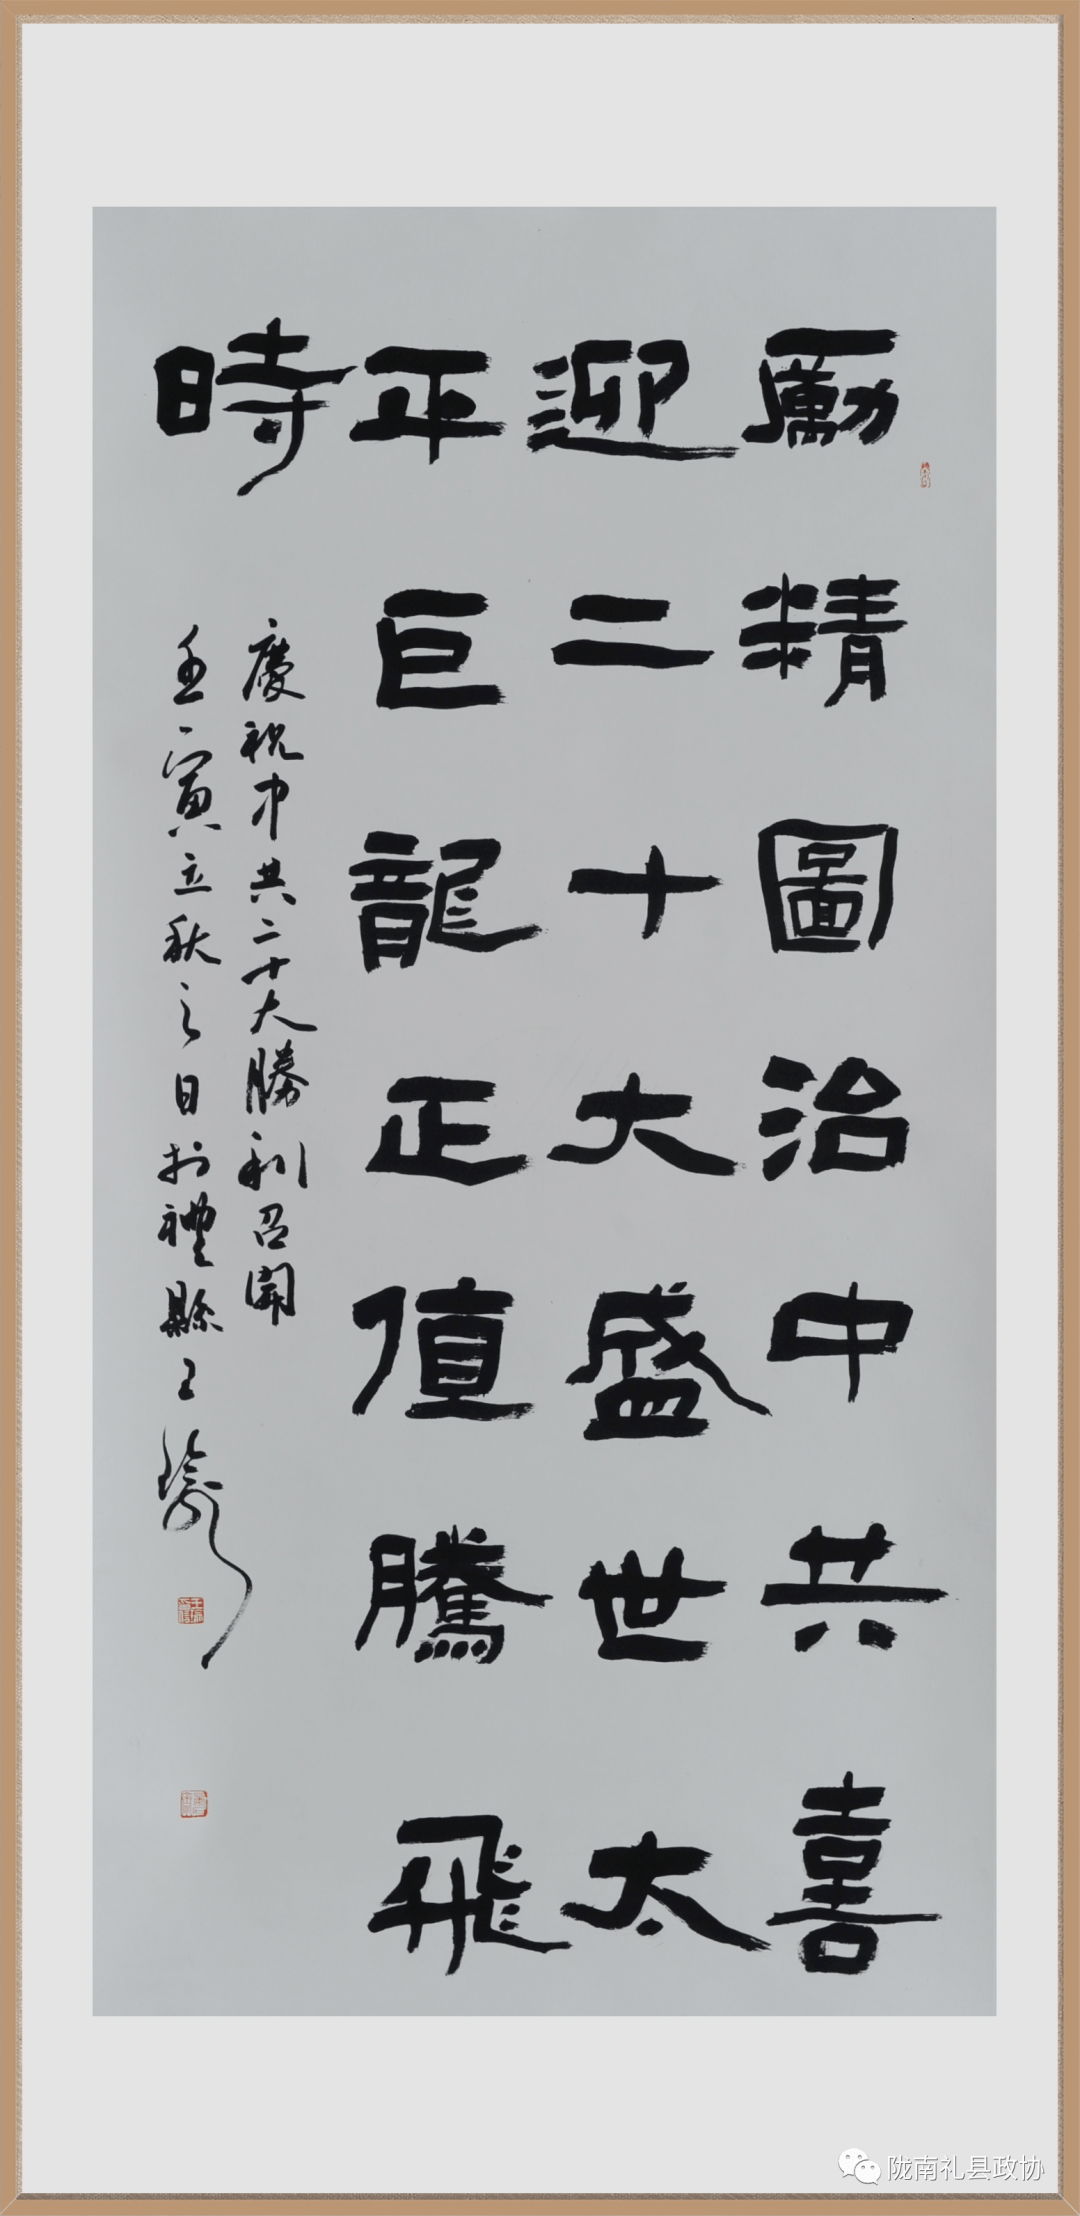 勵精圖治中共喜
迎二十大盛世太
平巨龍正值騰飛
時
慶祝中共二十大勝利召開
壬寅立秋之日於禮縣王瑜
陇南礼县政协